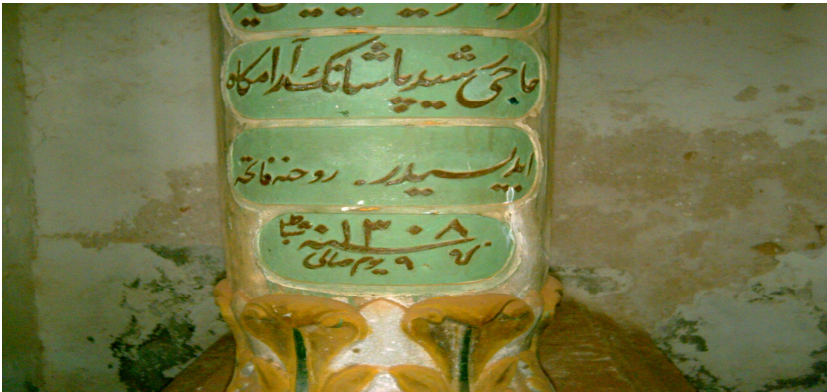 حاجی رشید پاشانك آرامكاه
ابدیسیدر. روحنه فاتحه
سنه ١٣٠٨
٩ یوم صالی